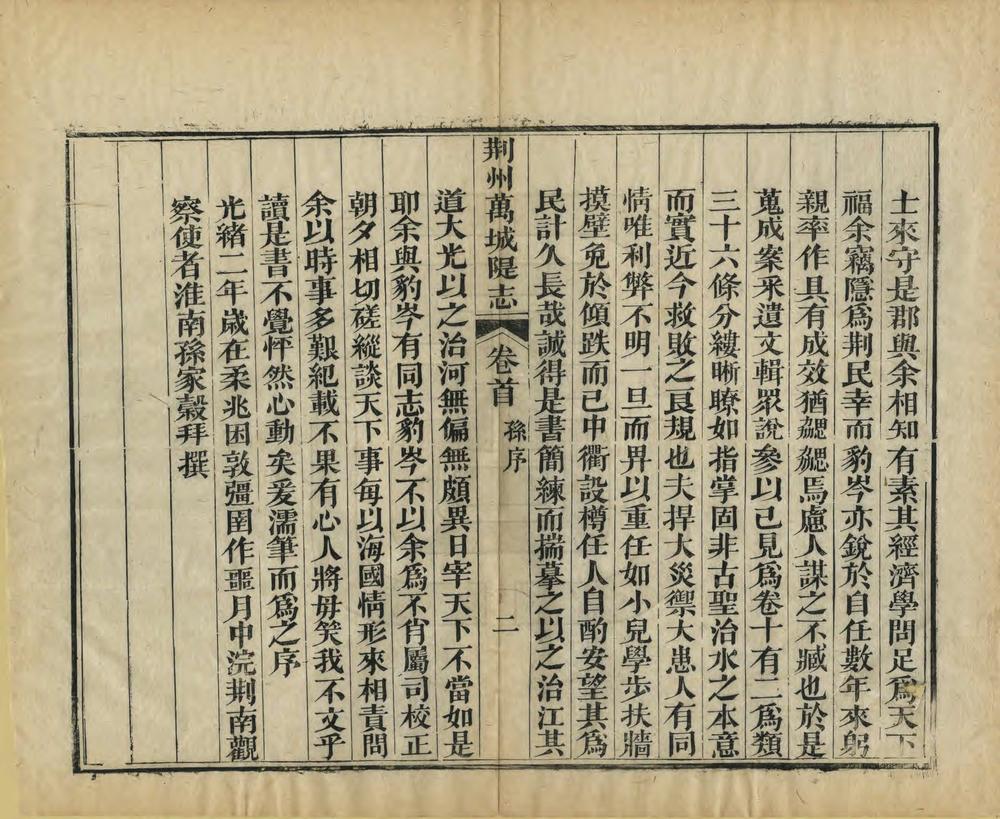 士來守是郡與余相知有素其經濟學問足爲天下
福余竊隱爲荆民幸而豹岑亦銳於自任數年來躬
親率作具有成效猶勰勰焉慮人謀之不臧也於是
蒐成案采遺文輯眾說參以己見爲卷十有二爲類
三十六條分縷晰瞭如指掌固非古聖治水之本意
而實近今救敗之良規也夫捍大災禦大患人有同
情唯利弊不明一旦而畀以重任如小兒學步扶牆
摸壁免於傾跌而已中衢設樽任人自酌安望其爲
民計久長哉誠得是書簡練而揣摹之以之治江其
荆州萬城隄志
卷首
孫序
二
道大光以之治河無偏無頗異日宰天下不當如是
耶余與豹岑有同志豹岑不以余爲不肖屬司校正
朝夕相切磋縱談天下事每以海國情形來相責問
余以時事多艱紀載不果有心人將毋笑我不文乎
讀是書不覺怦然心動矣爰濡筆而爲之序
光緒二年歲在柔兆困敦彊圉作噩月中浣荆南觀
察使者淮南孫家穀拜撰